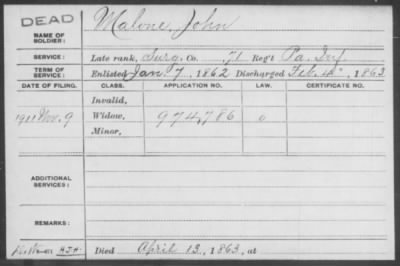 DEAD
NAME OF SOLDIER: Malone, John
SERVICE: Late rank, Surg. Co. 71 Reg't Pa. Inf.
TERM OF SERVICE: Enlisted Jan. 7, 1862 Discharged Feb. 4, 1863
DATE OF FILING. CLASS. APPLICATION NO. LAW. CERTIFICATE NO.
Invalid,
1911 Nov. 9 Widow, 974,786 o
Minor,
ADDITIONAL SERVICES:
REMARKS:
H.J.H. Died April 13, 1863, at